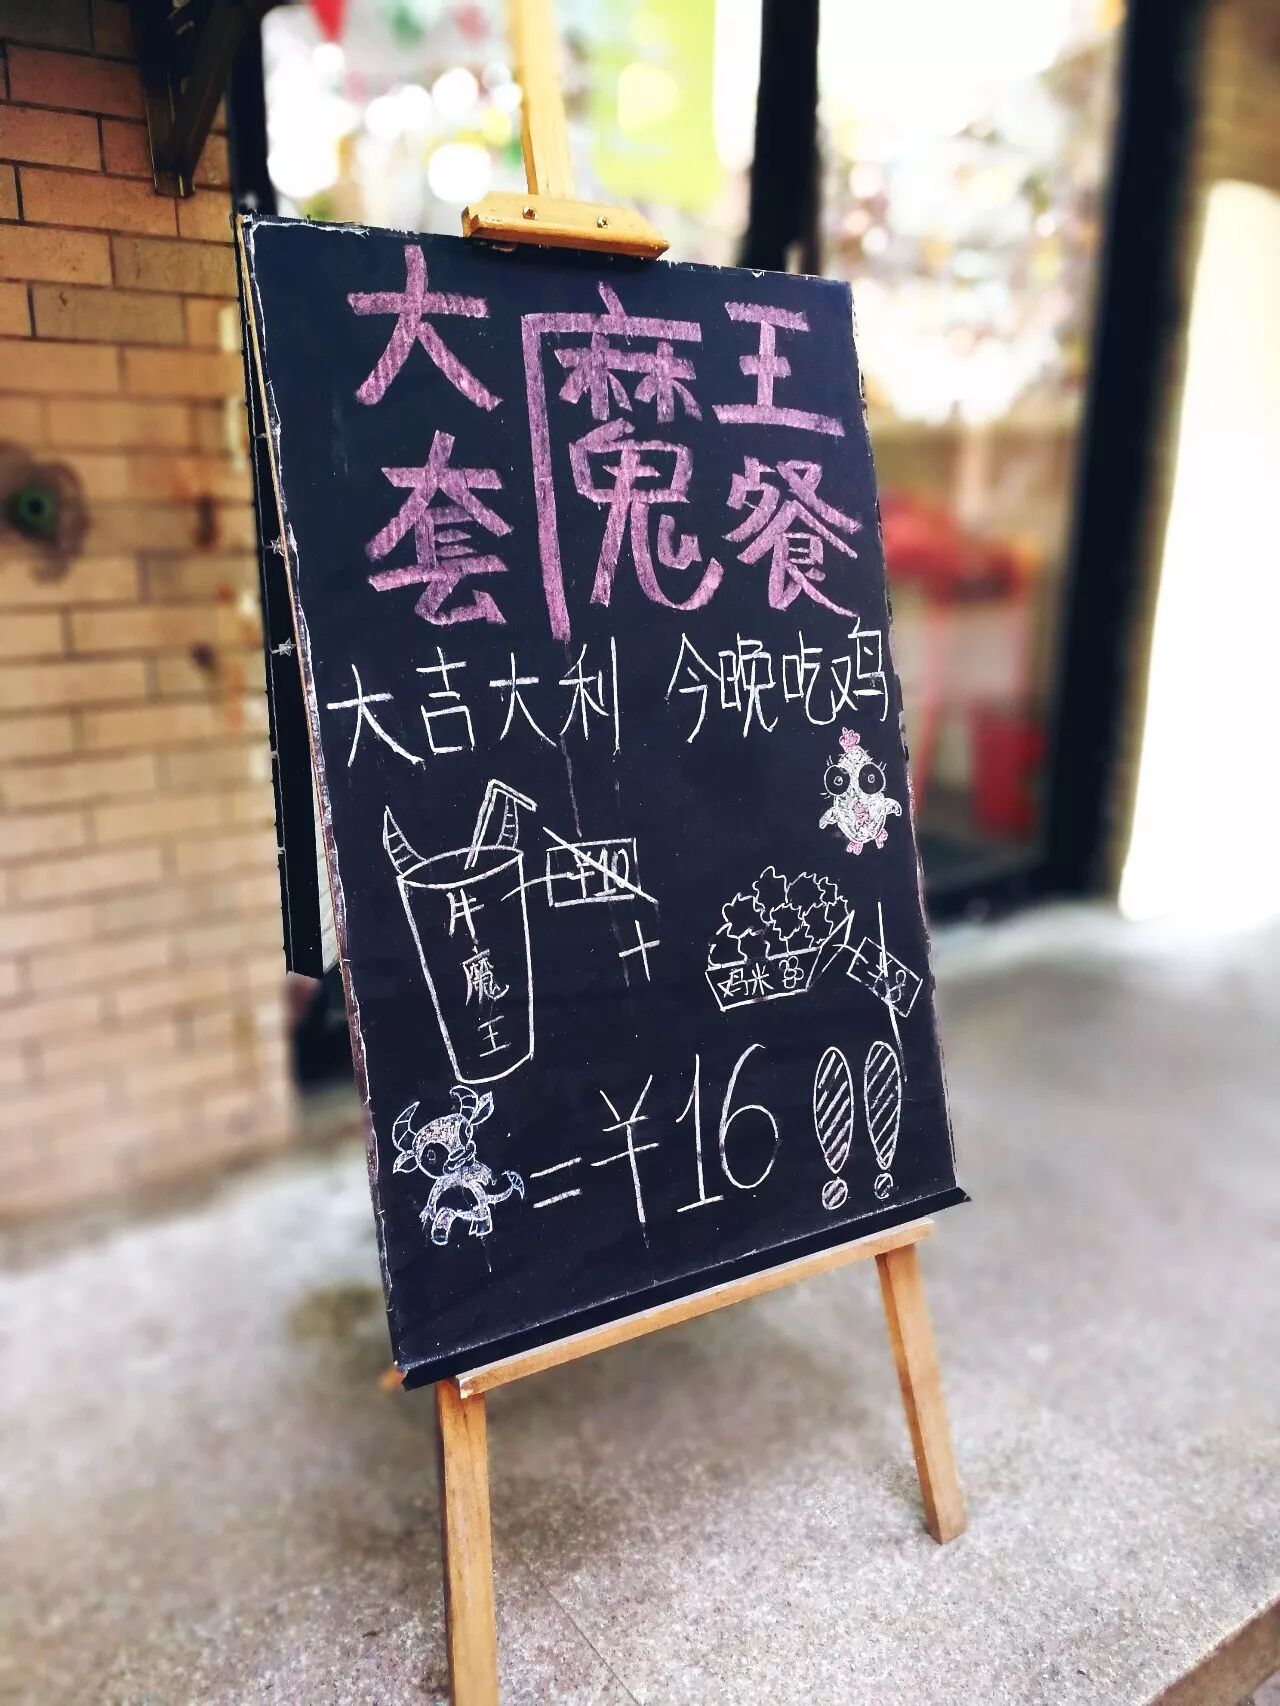 大魔王
套餐
大吉大利 今晚吃鸡
牛魔王
¥10
+
鸡米
=¥16!!